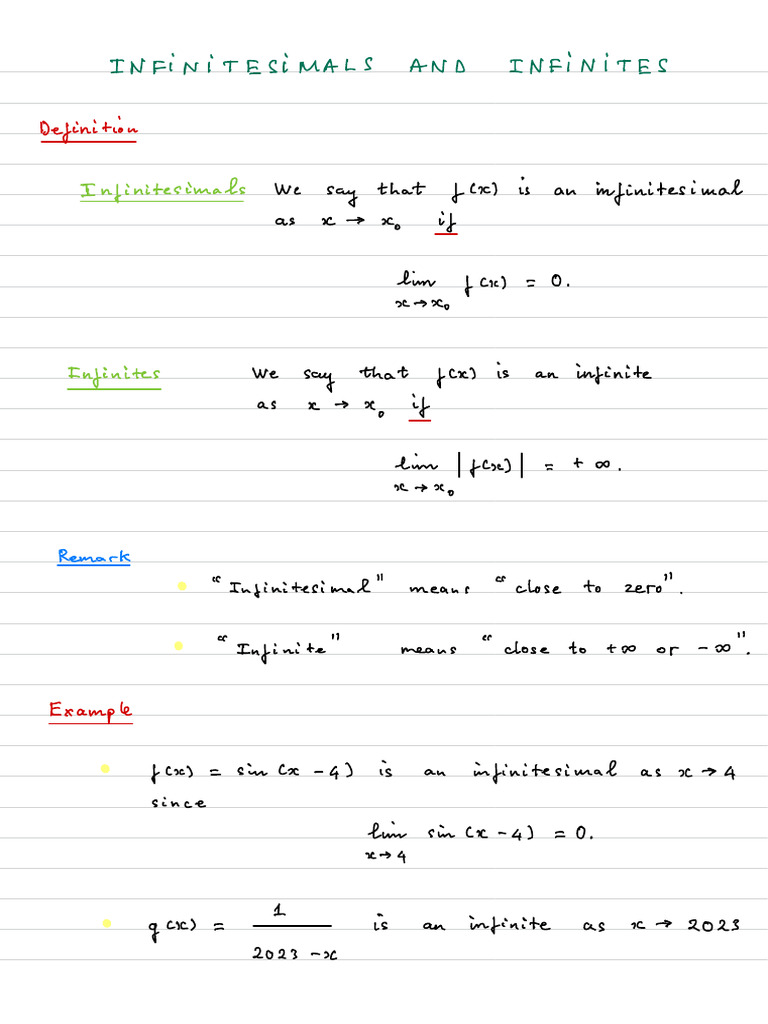 INFINITESIMALS AND INFINITES
Definition
Infinitesimals We say that f(x) is an infinitesimal
as x → x₀ if
lim f(x) = 0.
x→x₀
Infinites We say that f(x) is an infinite
as x → x₀ if
lim |f(x)| = +∞.
x→x₀
Remark
• "Infinitesimal" means "close to zero".
• "Infinite" means "close to +∞ or -∞".
Example
• f(x) = sin(x-4) is an infinitesimal as x→4
since
lim sin(x-4) = 0.
x→4
1
• g(x) = ——— is an infinite as x→ 2023
2023-x